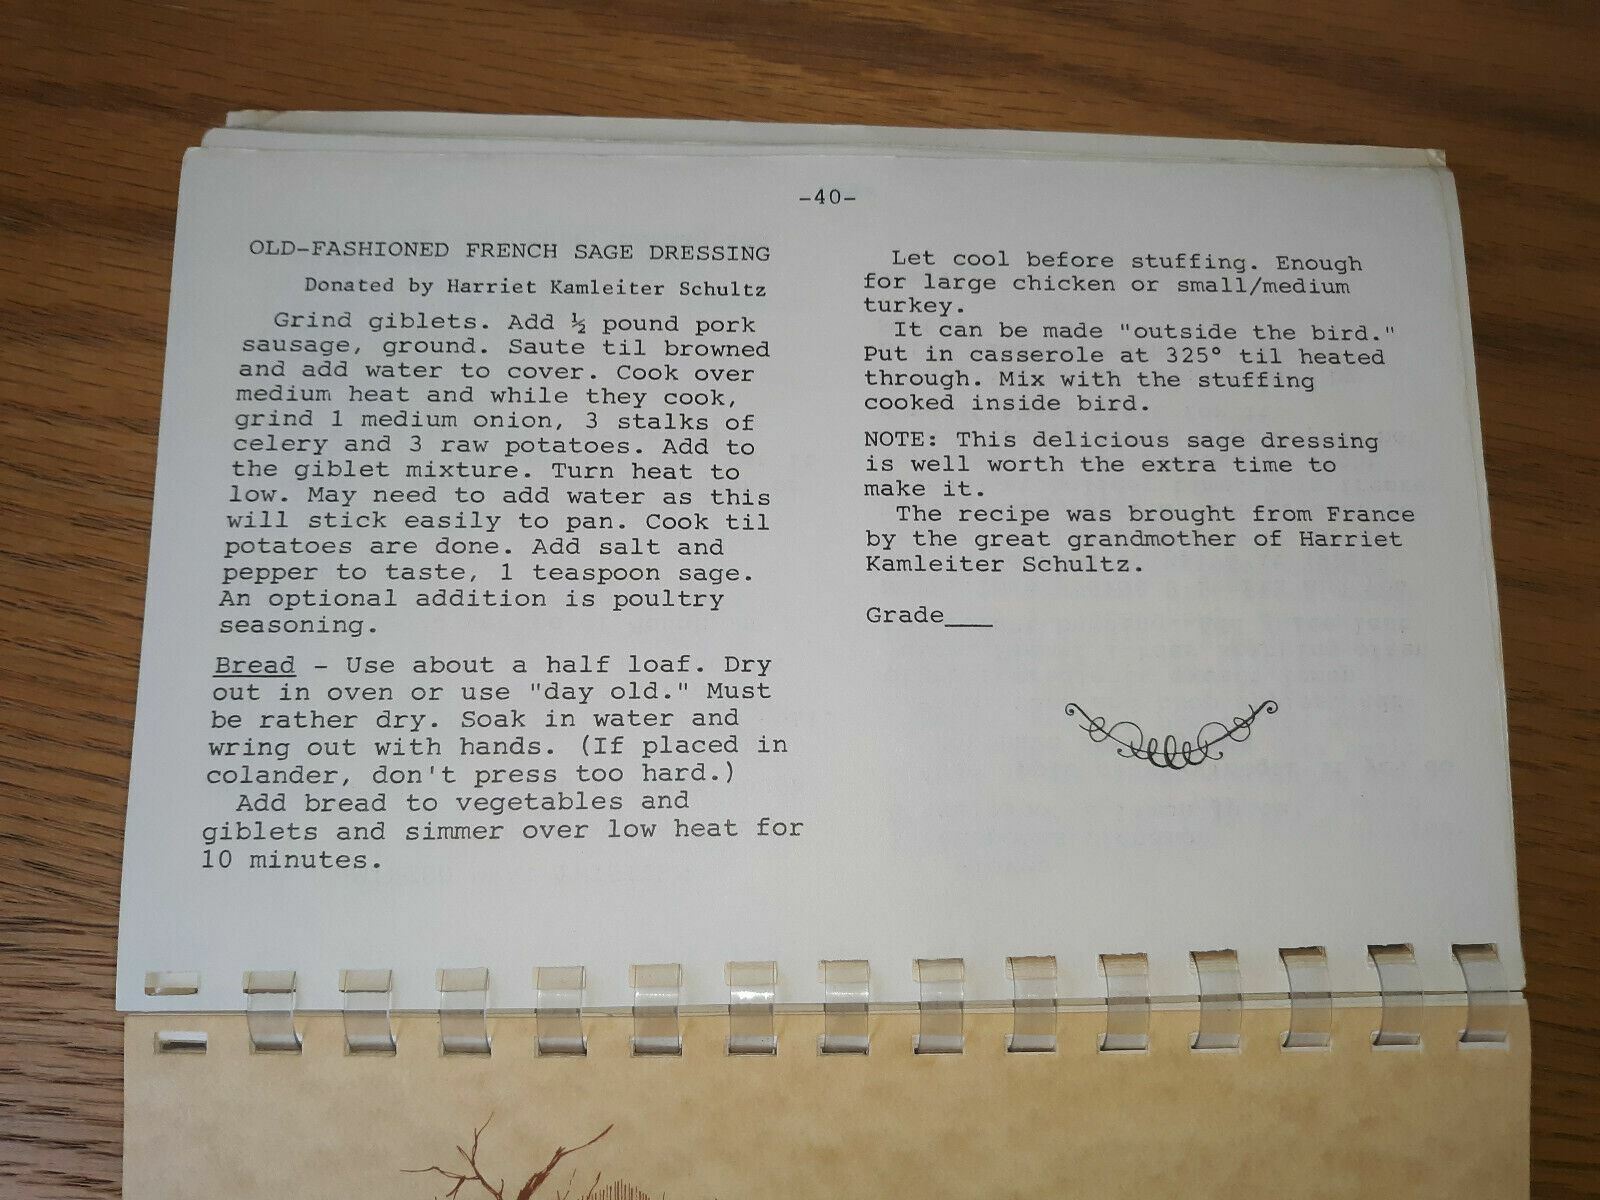 -40-
OLD-FASHIONED FRENCH SAGE DRESSING
Donated by Harriet Kamleiter Schultz
Grind giblets. Add ½ pound pork
sausage, ground. Saute til browned
and add water to cover. Cook over
medium heat and while they cook,
grind 1 medium onion, 3 stalks of
celery and 3 raw potatoes. Add to
the giblet mixture. Turn heat to
low. May need to add water as this
will stick easily to pan. Cook til
potatoes are done. Add salt and
pepper to taste, 1 teaspoon sage.
An optional addition is poultry
seasoning.
Bread - Use about a half loaf. Dry
out in oven or use "day old." Must
be rather dry. Soak in water and
wring out with hands. (If placed in
colander, don't press too hard.)
Add bread to vegetables and
giblets and simmer over low heat for
10 minutes.
Let cool before stuffing. Enough
for large chicken or small/medium
turkey.
It can be made "outside the bird."
Put in casserole at 325° til heated
through. Mix with the stuffing
cooked inside bird.
NOTE: This delicious sage dressing
is well worth the extra time to
make it.
The recipe was brought from France
by the great grandmother of Harriet
Kamleiter Schultz.
Grade___